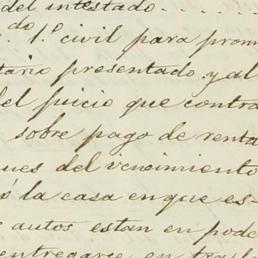 del intestado.....
do. 1.º civil para prom
tario presentado y al
del juicio que contra
sobre pago de renta
ues del vencimiento
ó la casa en que es-
autos estan en pode
entregarse en trasla